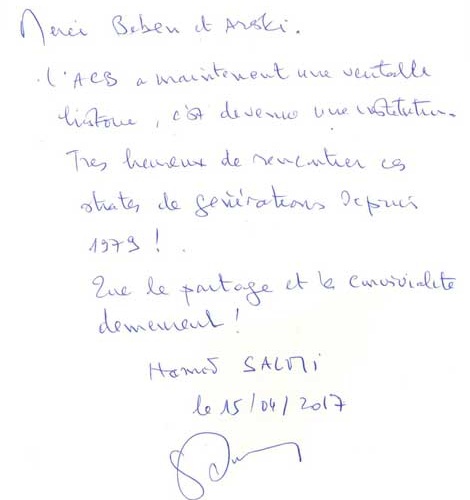 Merci Beben et Arski.
L'ACB a maintenant une veritable
histoire, c'est devenue une institution.
Tres heureux de rencontrer ces
strates de générations Depuis
1979 !
Que le partage et la convivialité
demeurent !
Hamid SALMI
le 15/04/2017